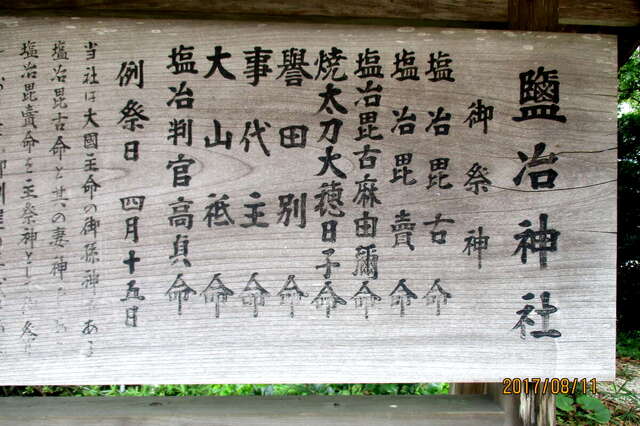 鹽冶神社
御祭神
塩冶毘古命
塩冶毘賣命
塩冶毘古麻由彌命
焼太刀大穂日子命
譽田別命
事代主命
大山祗命
塩冶判官高貞命
例祭日 四月十五日
当社は大國主命の御孫神 ある
塩冶毘古命と其の妻神
塩冶毘賣命を主祭神とし
2017/08/11